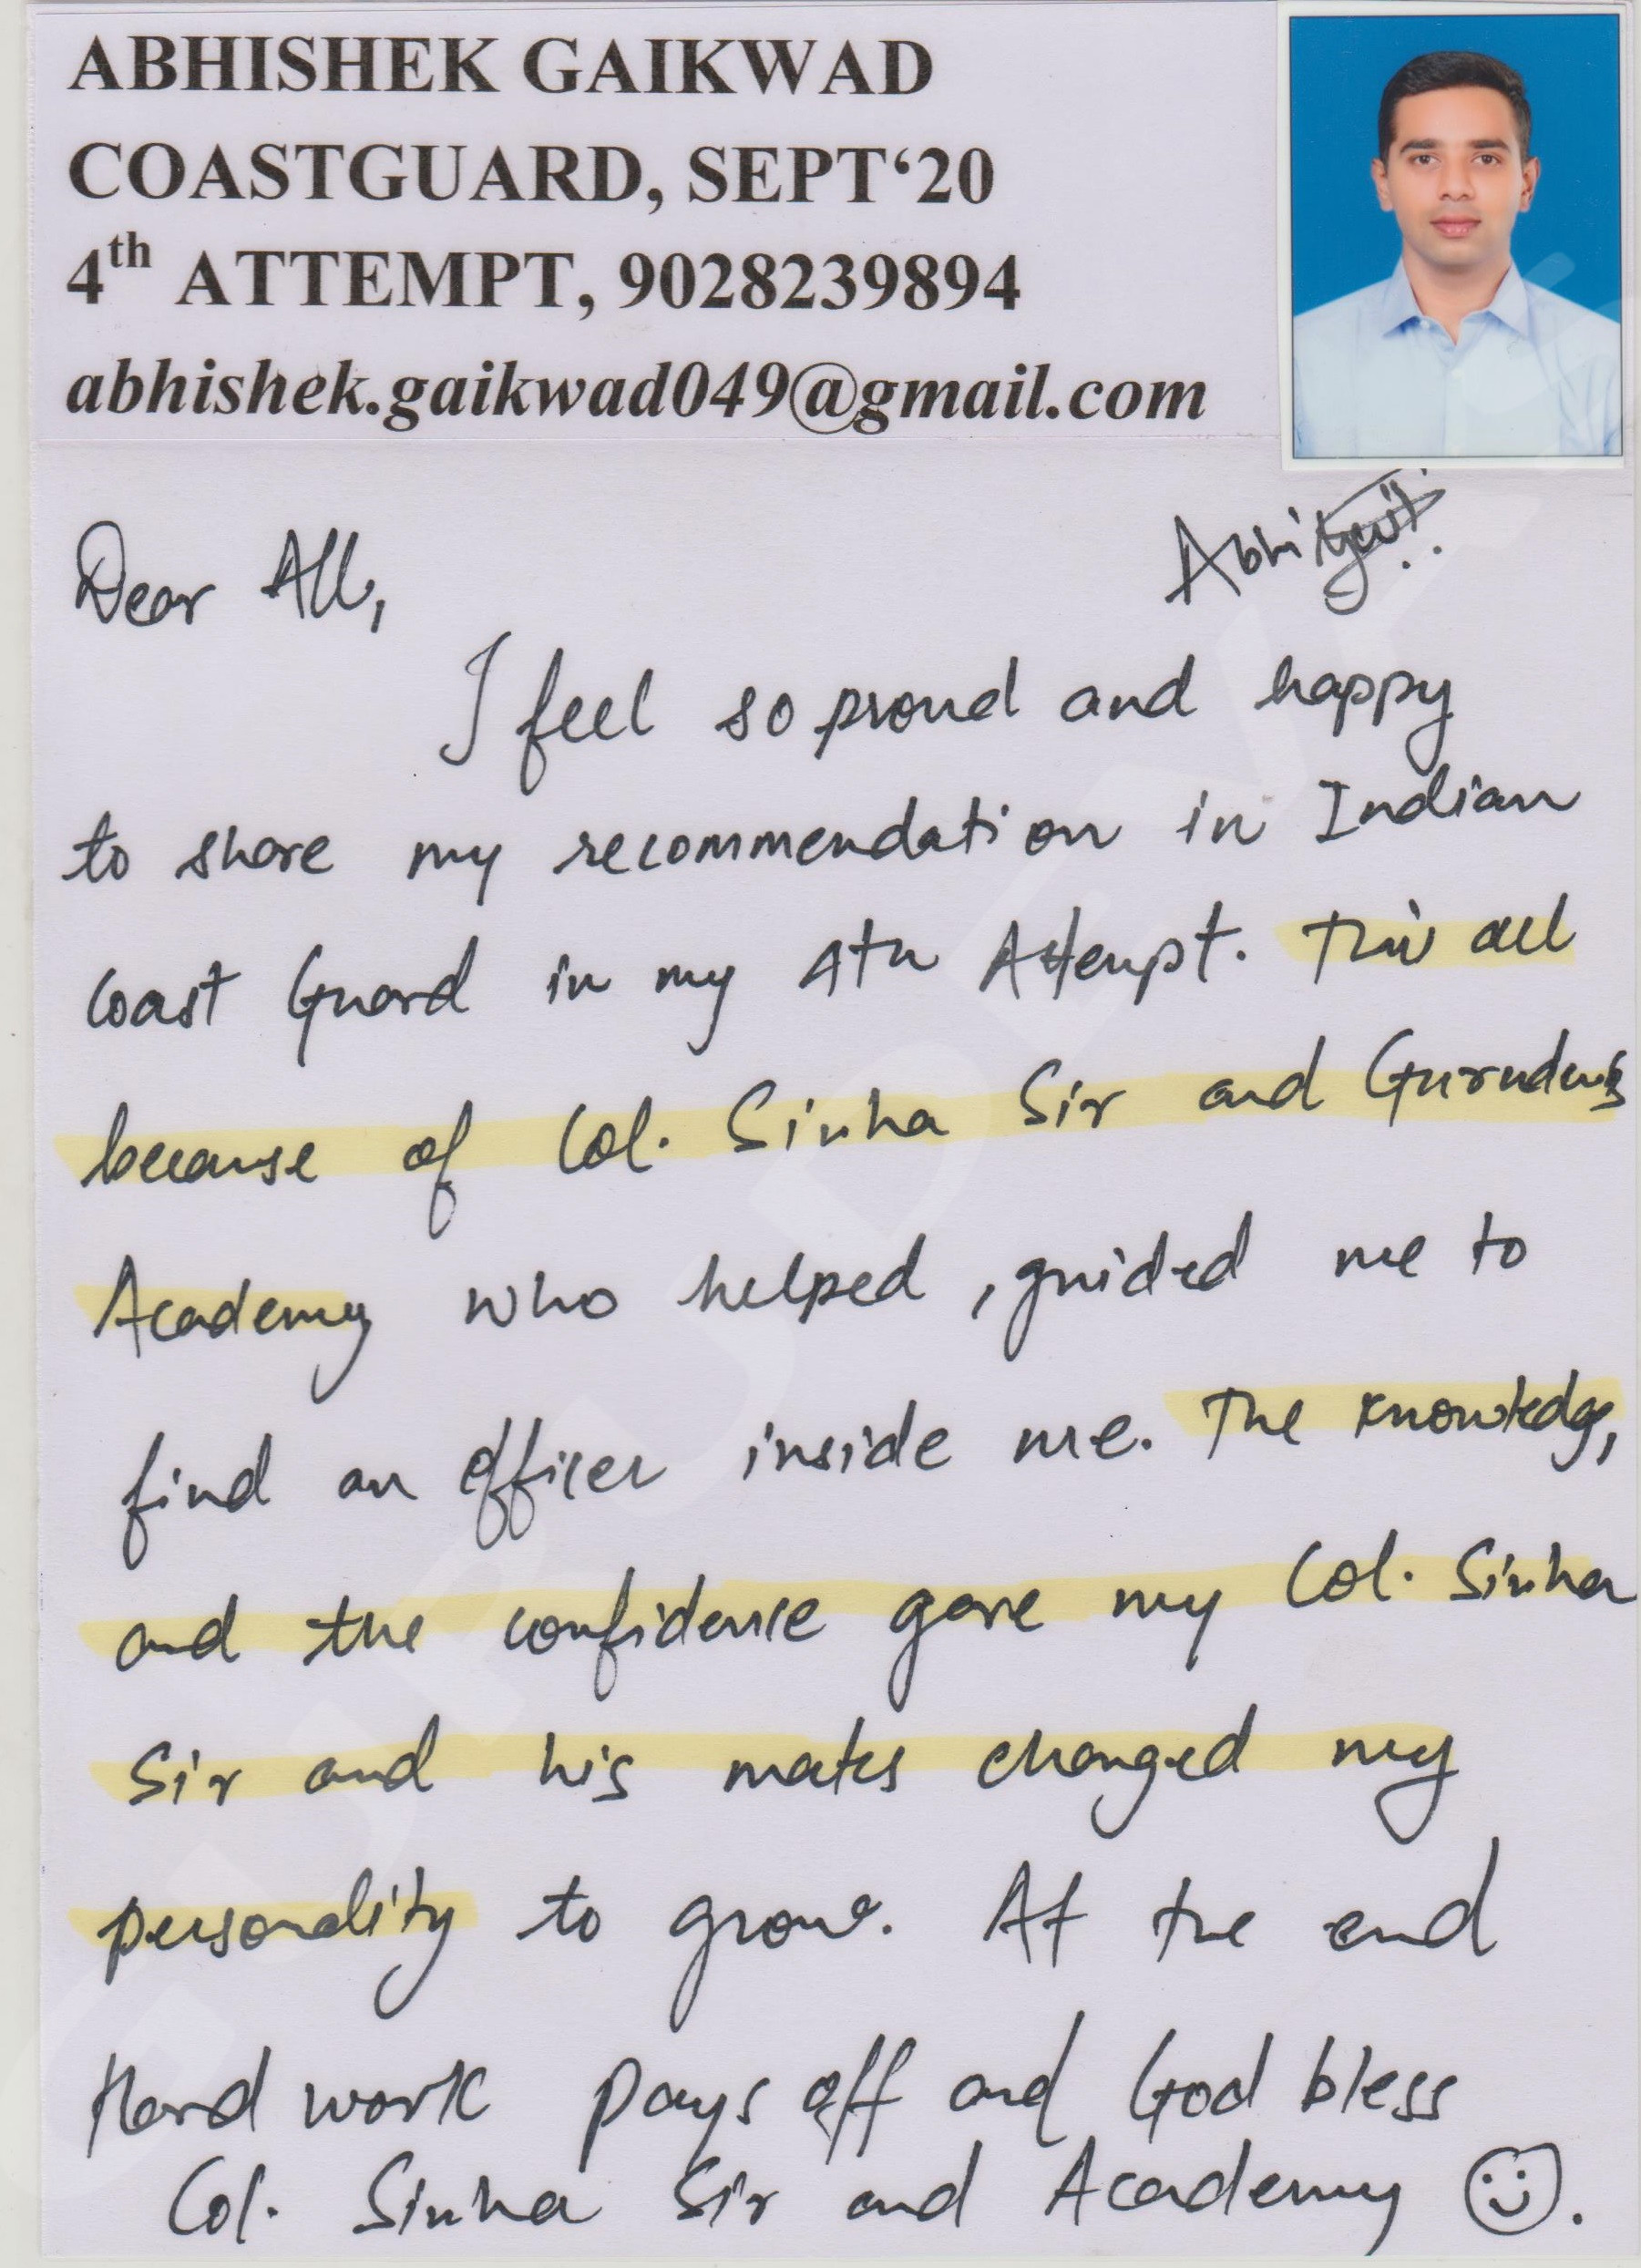 ABHISHEK GAIKWAD
COASTGUARD, SEPT‘20
4th ATTEMPT, 9028239894
abhishek.gaikwad049@gmail.com
Dear All,
I feel so proud and happy
to share my recommendation in Indian
Coast Guard in my 4th Attempt. This all
because of Col. Sinha Sir and Gurudevs
Academy who helped, guided me to
find an officer inside me. The knowledge,
and the confidence gave my Col. Sinha
Sir and his mates changed my
personality to grow. At the end
Hard work pays off and God bless
Col. Sinha Sir and Academy ☺.
GURUDEVA